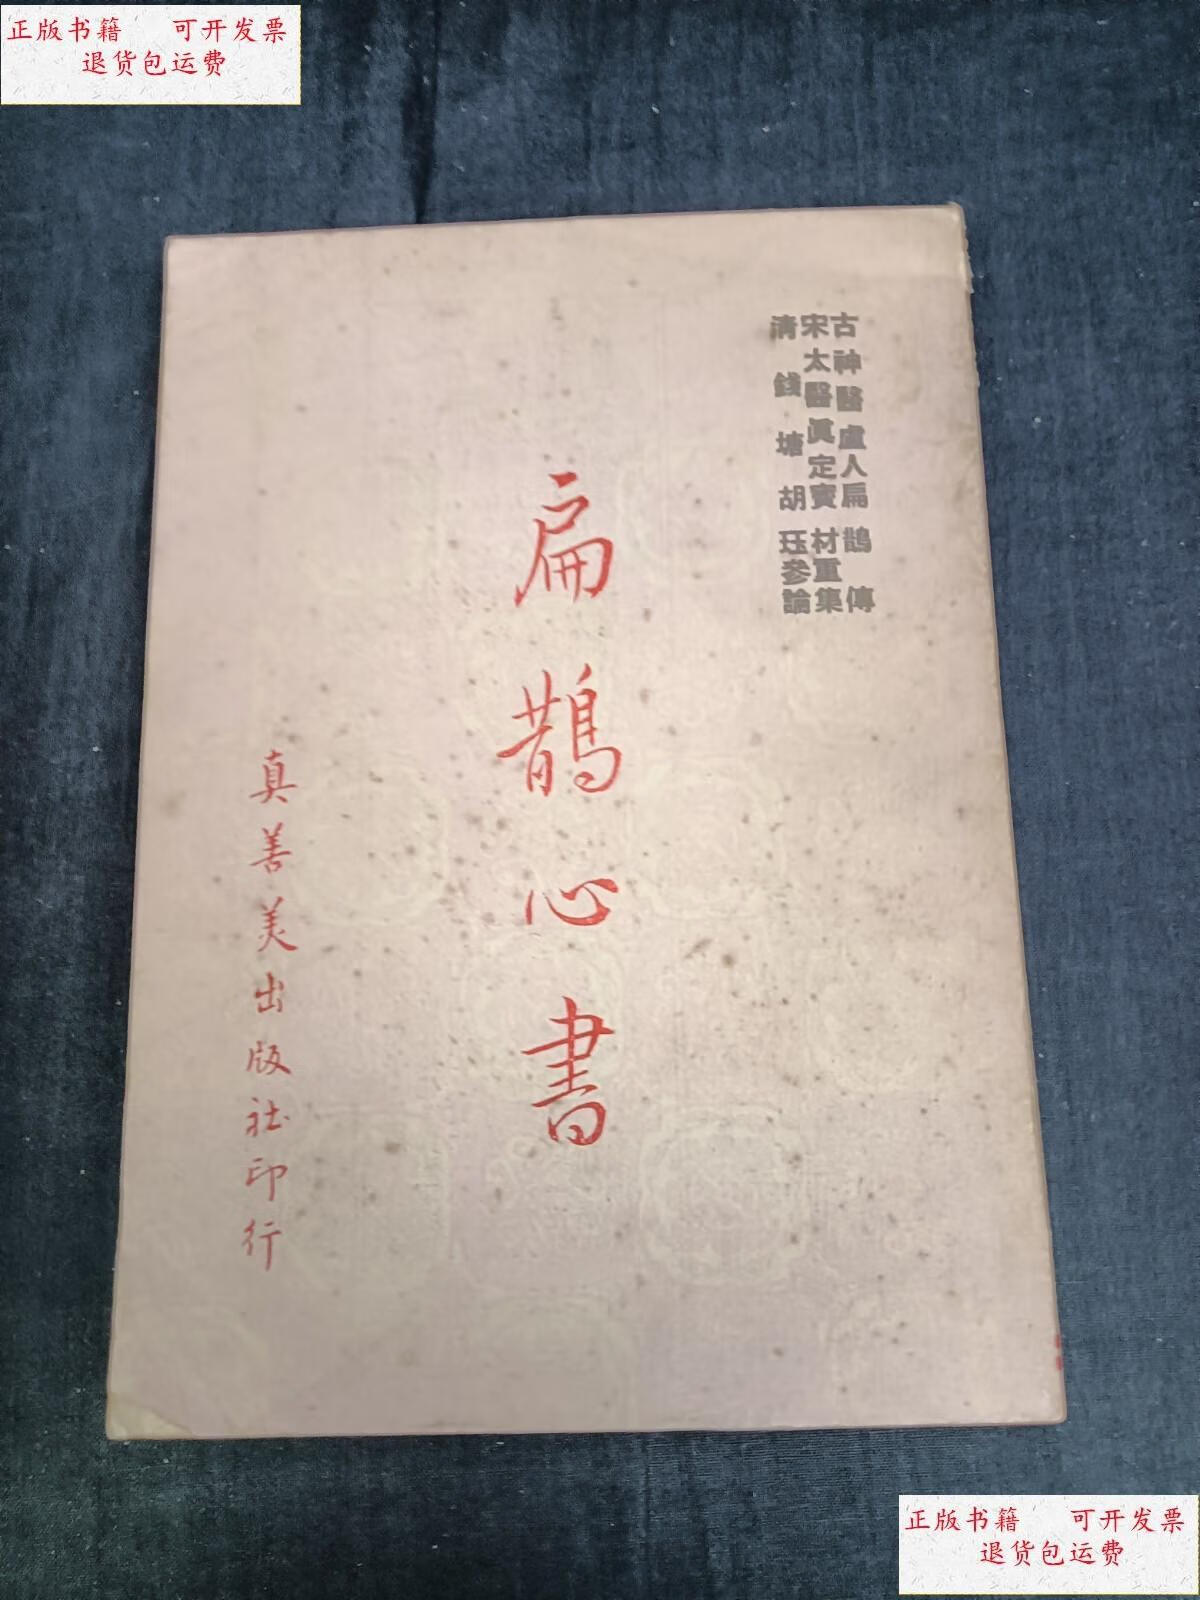 正版书籍 可开发票
退货包运费
古神醫盧人扁鵲傳
宋太醫眞定竇材重集
清錢塘胡珏參論
扁鵲心書
真善美出版社印行
正版书籍 可开发票
退货包运费